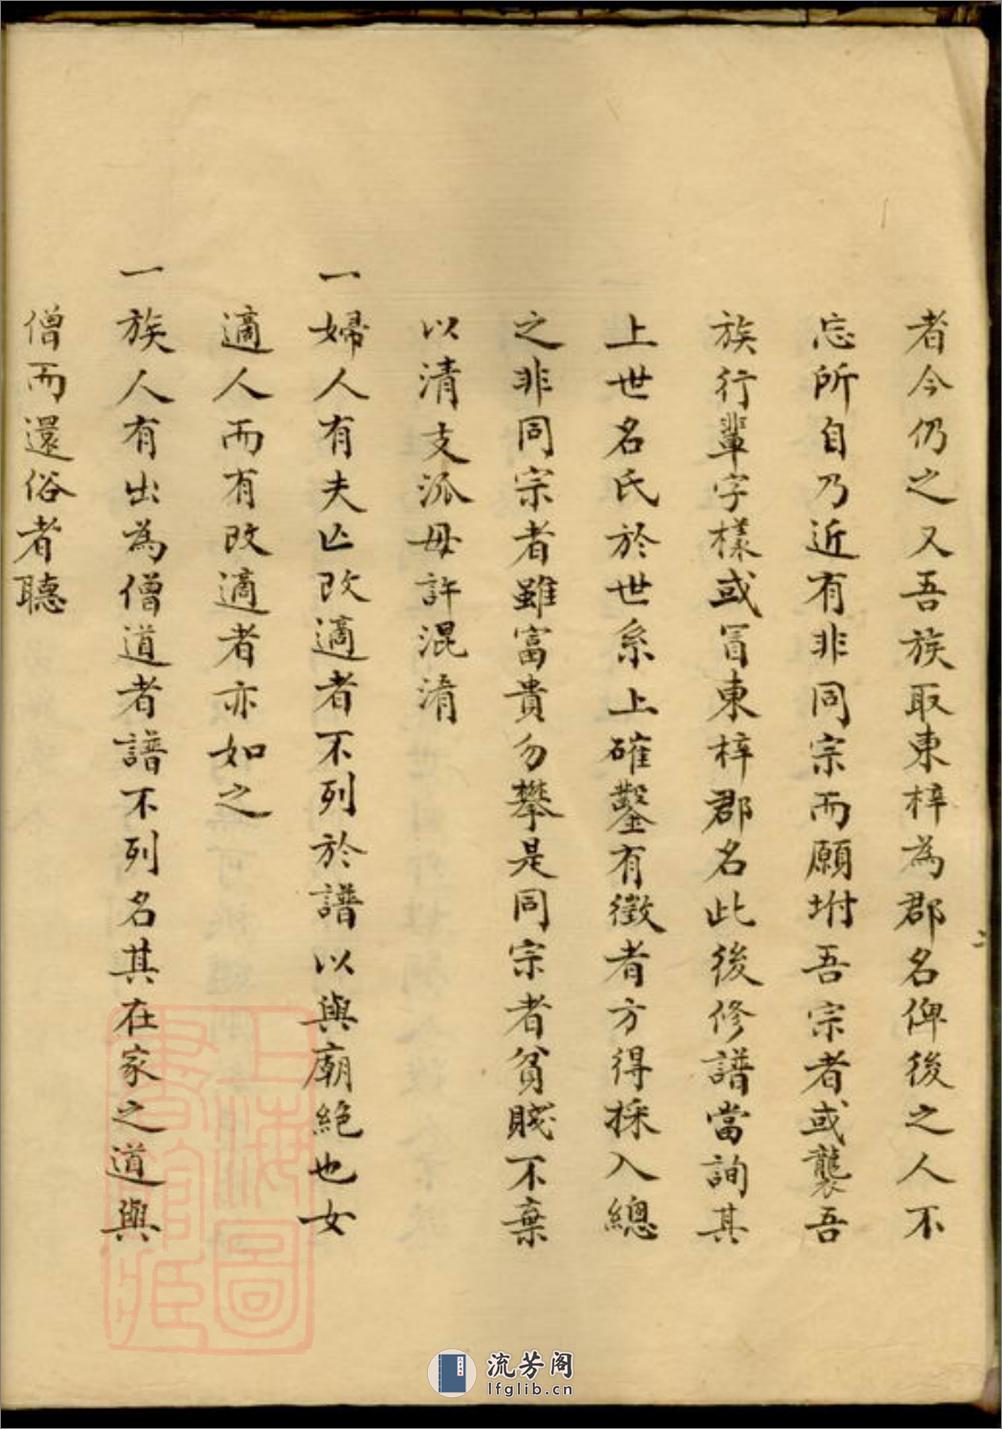 者今仍之又吾族取東梓為郡名俾後之人不
忘所自乃近有非同宗而願坿吾宗者或襲吾
族行輩字樣或冒東梓郡名此後修譜當詢其
上世名氏於世系上確鑿有徵者方得採入總
之非同宗者雖富貴勿攀是同宗者貧賤不棄
以清支派毋許混淆
一婦人有夫亡改適者不列於譜以與廟絕也女
適人而有改適者亦如之
一族人有出為僧道者譜不列名其在家之道與
僧而還俗者聽
上海圖
書館藏
流芳阁
lfglib.cn